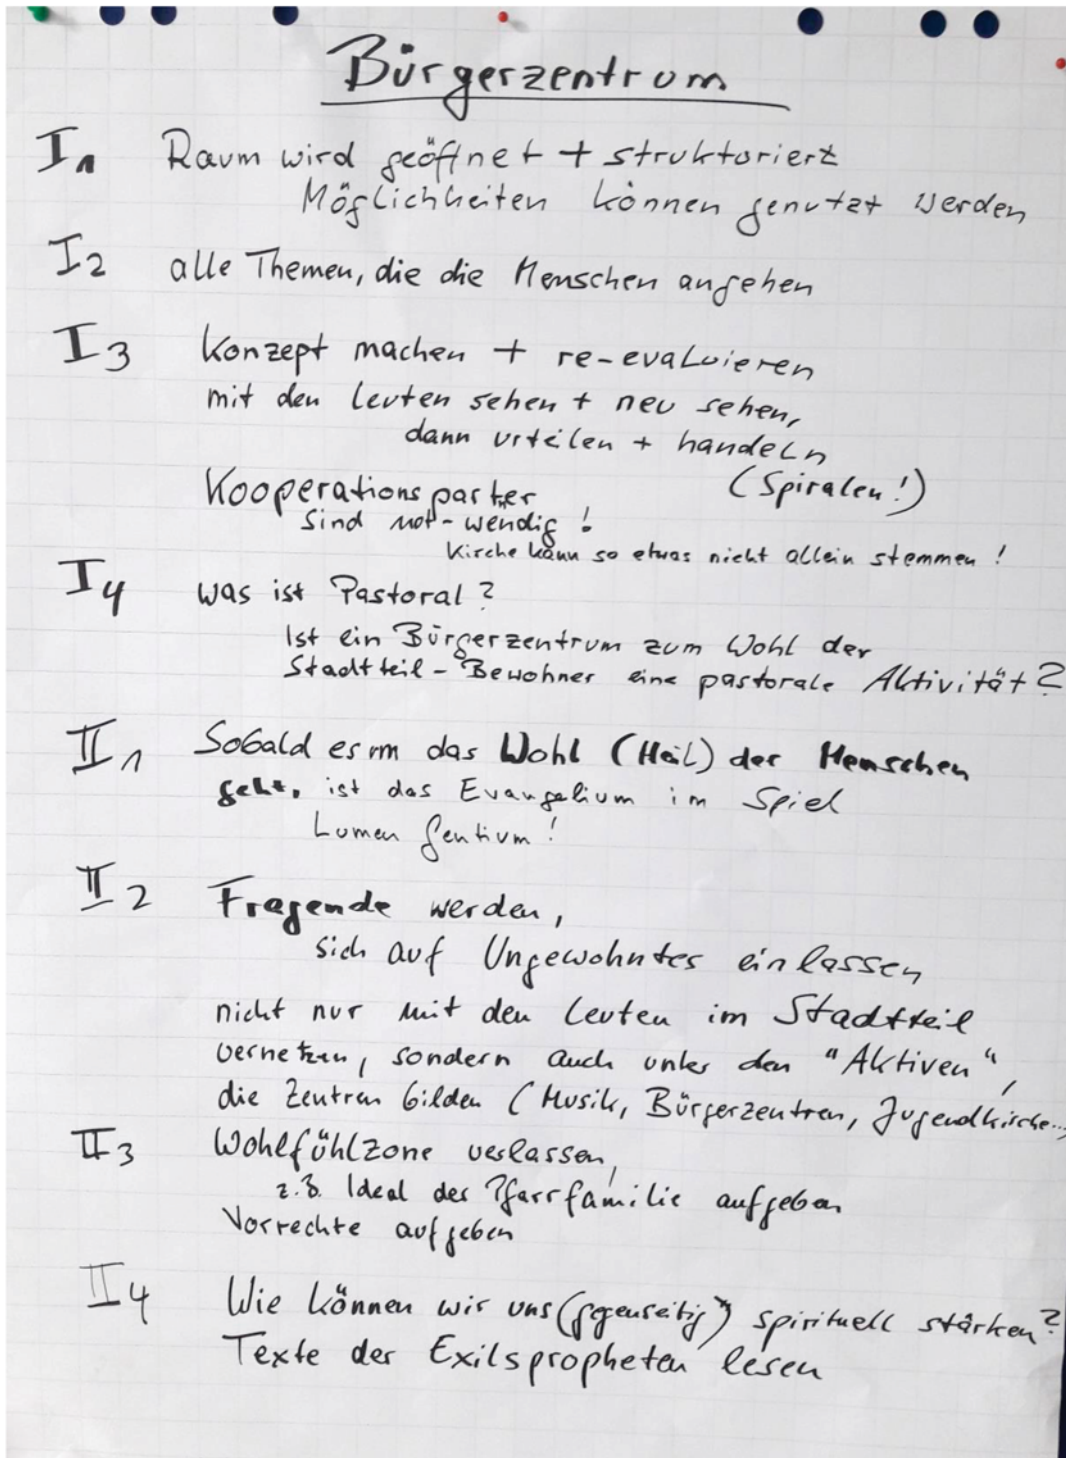 Bürgerzentrum
I1 Raum wird geöffnet + strukturiert
Möglichkeiten können genutzt werden
I2 alle Themen, die die Menschen angehen
I3 Konzept machen + re-evaluieren
mit den Leuten sehen + neu sehen,
dann urteilen + handeln
Kooperationsparter (Spiralen!)
sind not-wendig!
Kirche kann so etwas nicht allein stemmen!
I4 was ist Pastoral?
Ist ein Bürgerzentrum zum Wohl der
Stadtteil-Bewohner eine pastorale Aktivität?
II1 Sobald es um das Wohl (Heil) der Menschen
geht, ist das Evangelium im Spiel
Lumen Gentium!
II2 Fragende werden,
sich auf Ungewohntes einlassen
nicht nur mit den Leuten im Stadtteil
vernetzen, sondern auch unter den "Aktiven",
die Zentren bilden (Musik, Bürgerzentren, Jugendkirche...)
II3 Wohlfühlzone verlassen,
z.B. Ideal der Pfarrfamilie aufgeben
Vorrechte aufgeben
II4 Wie können wir uns (gegenseitig) spirituell stärken?
Texte der Exilspropheten lesen